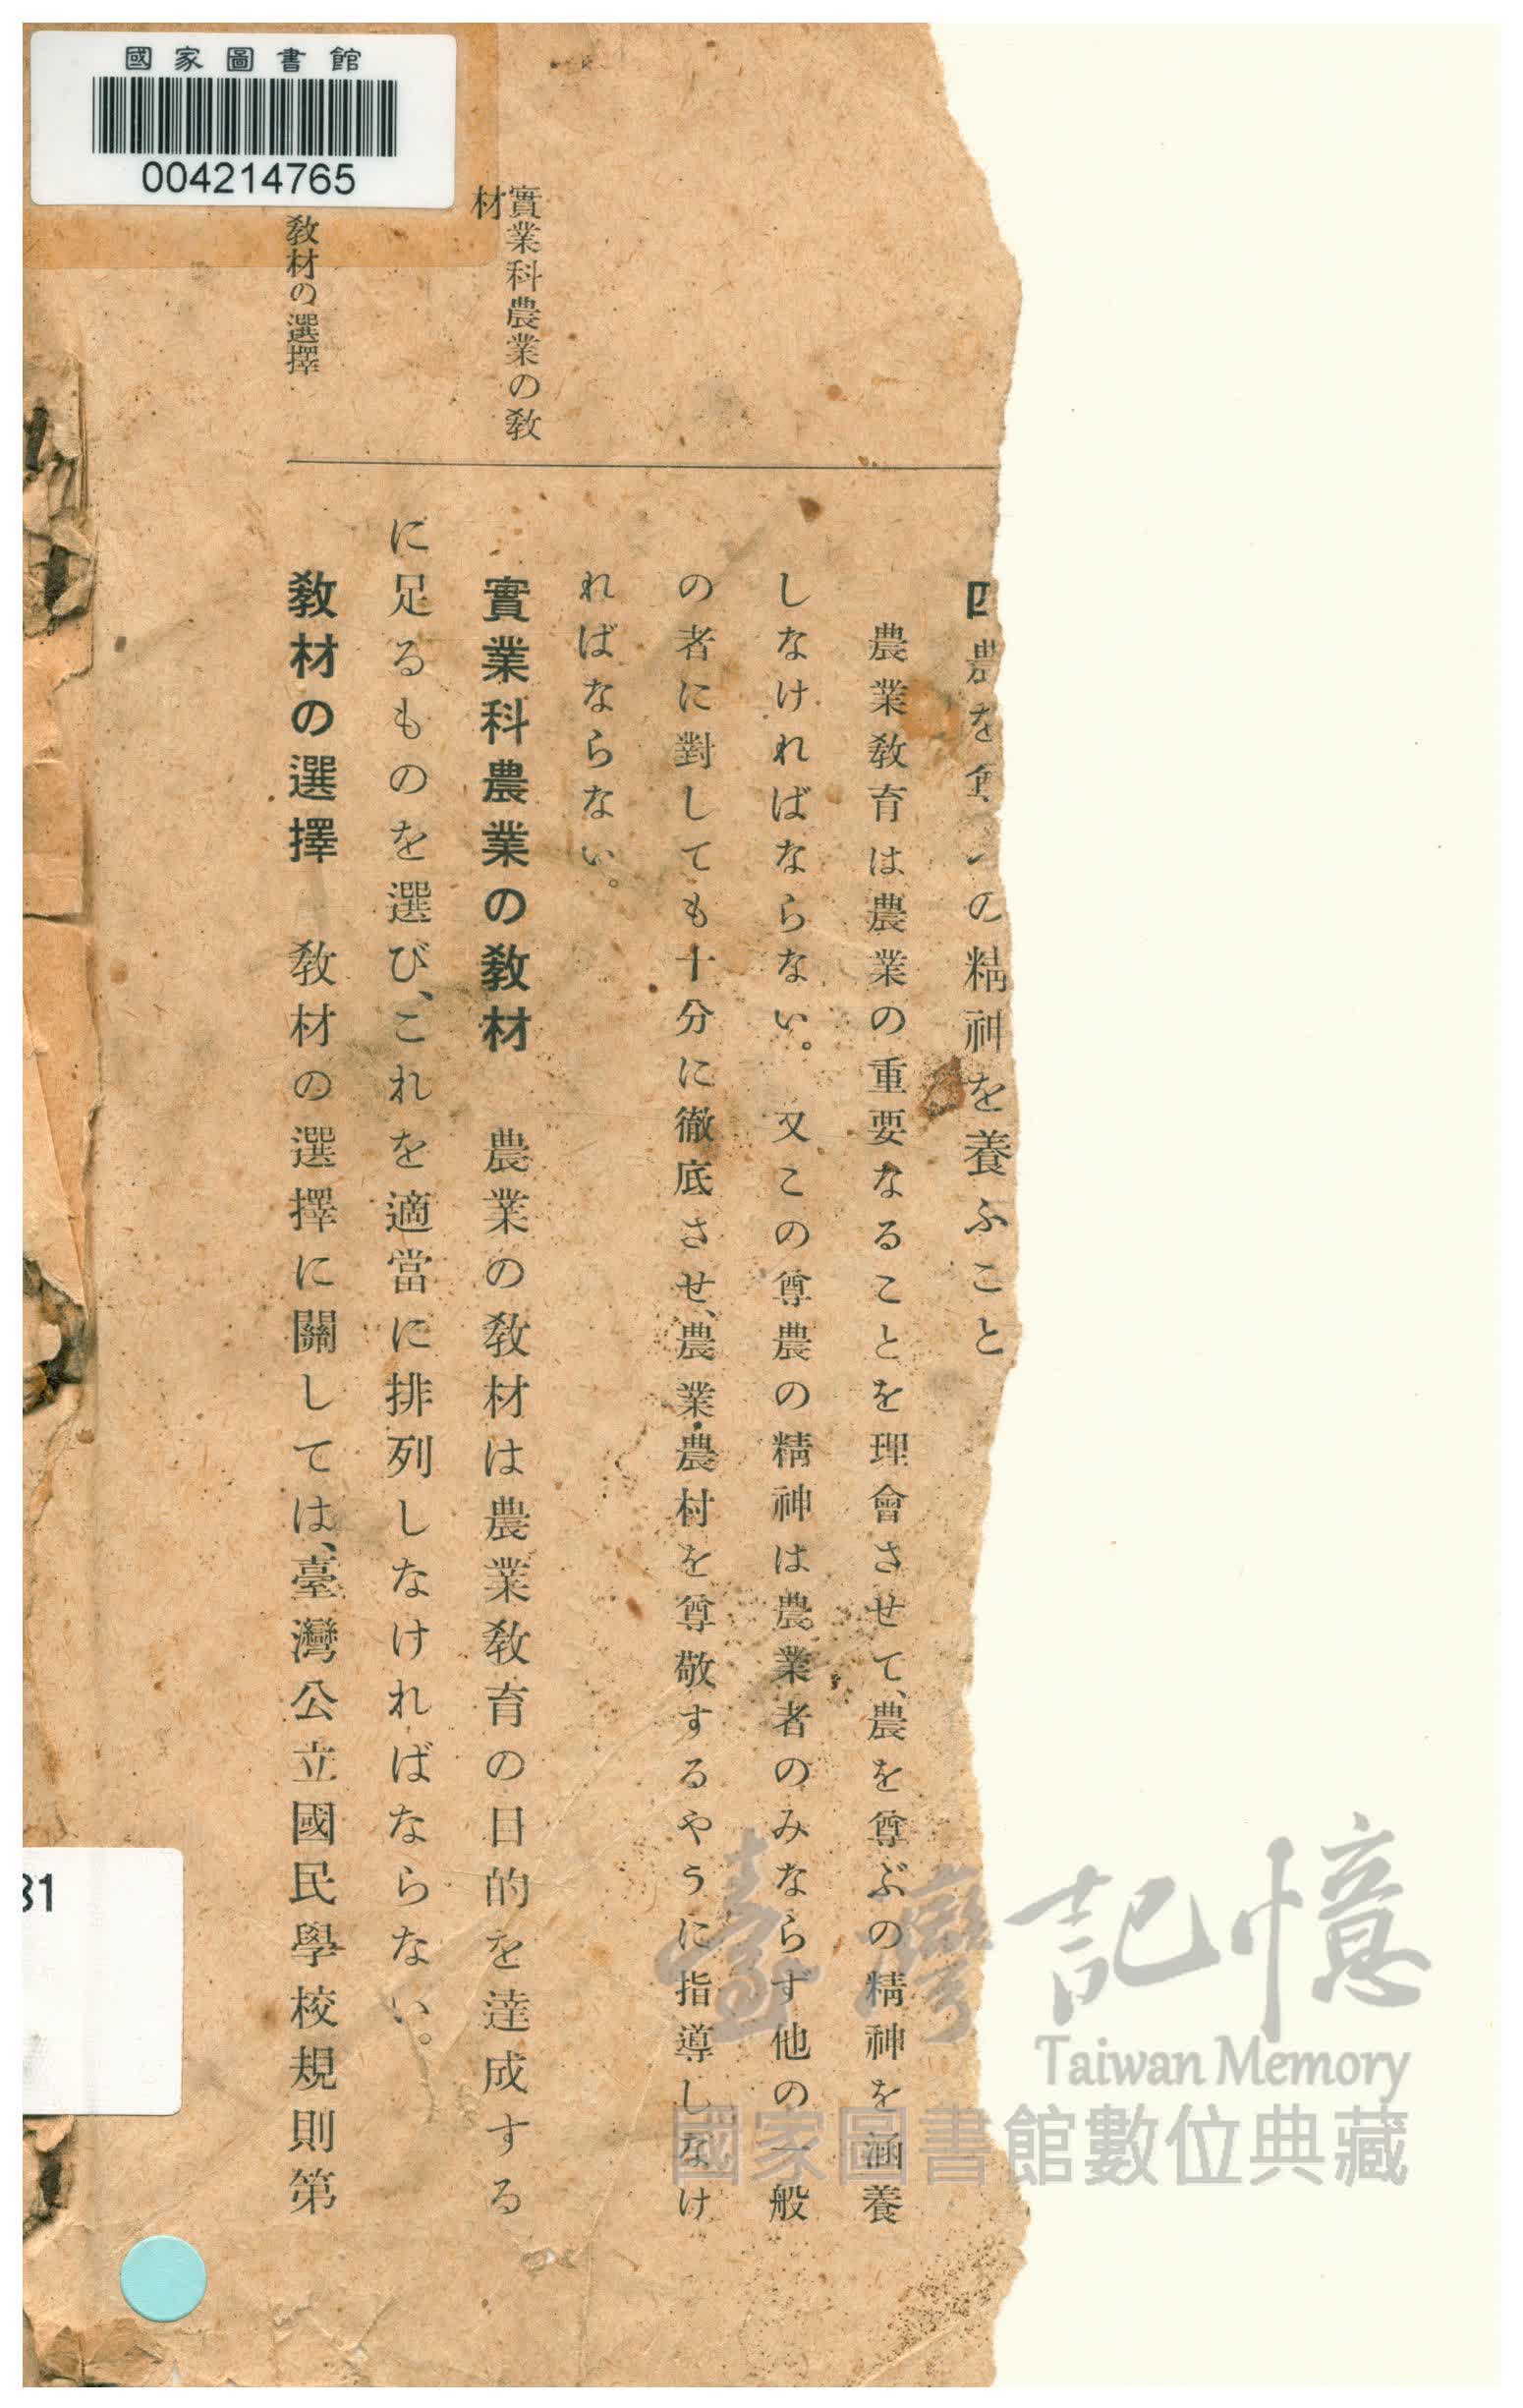 國家圖書館
004214765
實業科農業の教
材
教材の選擇
農を の精神を養ふこと
農業教育は農業の重要なることを理會させて、農を尊ぶの精神を涵養
しなければならない。又この尊農の精神は農業者のみならず他の一般
の者に對しても十分に徹底させ、農業・農村を尊敬するやうに指導しなけ
ればならない。
實業科農業の教材　農業の教材は農業教育の目的を達成する
に足るものを選び、これを適當に排列しなければならない。
教材の選擇　教材の選擇に關しては、臺灣公立國民學校規則第
31
臺灣記憶
Taiwan Memory
國家圖書館數位典藏